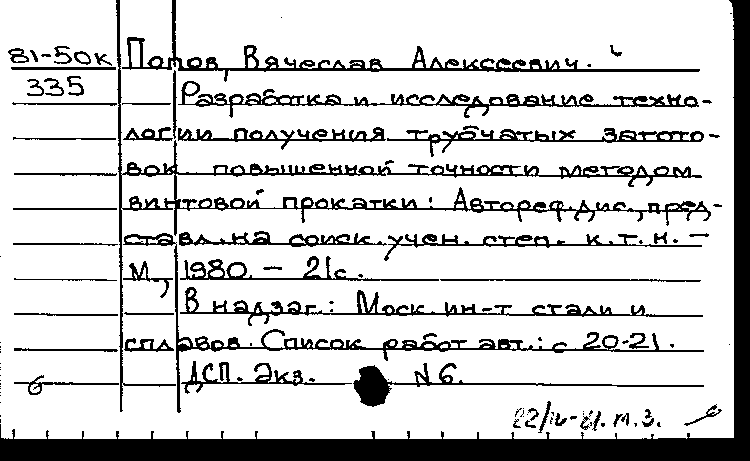 81-50к Попов, Вячеслав Алексеевич.
335 Разработка и исследование техно-
логии получения трубчатых загото-
вок повышенной точности методом
винтовой прокатки: Автореф.дис.,пред-
ставл.на соиск.учен.степ. к.т.н. –
М., 1980. – 21с.
В надзаг.: Моск. ин-т стали и
сплавов. Список работ авт.: с 20-21.
ДСП. Экз. N6.
б
22/IV-81. т.з.